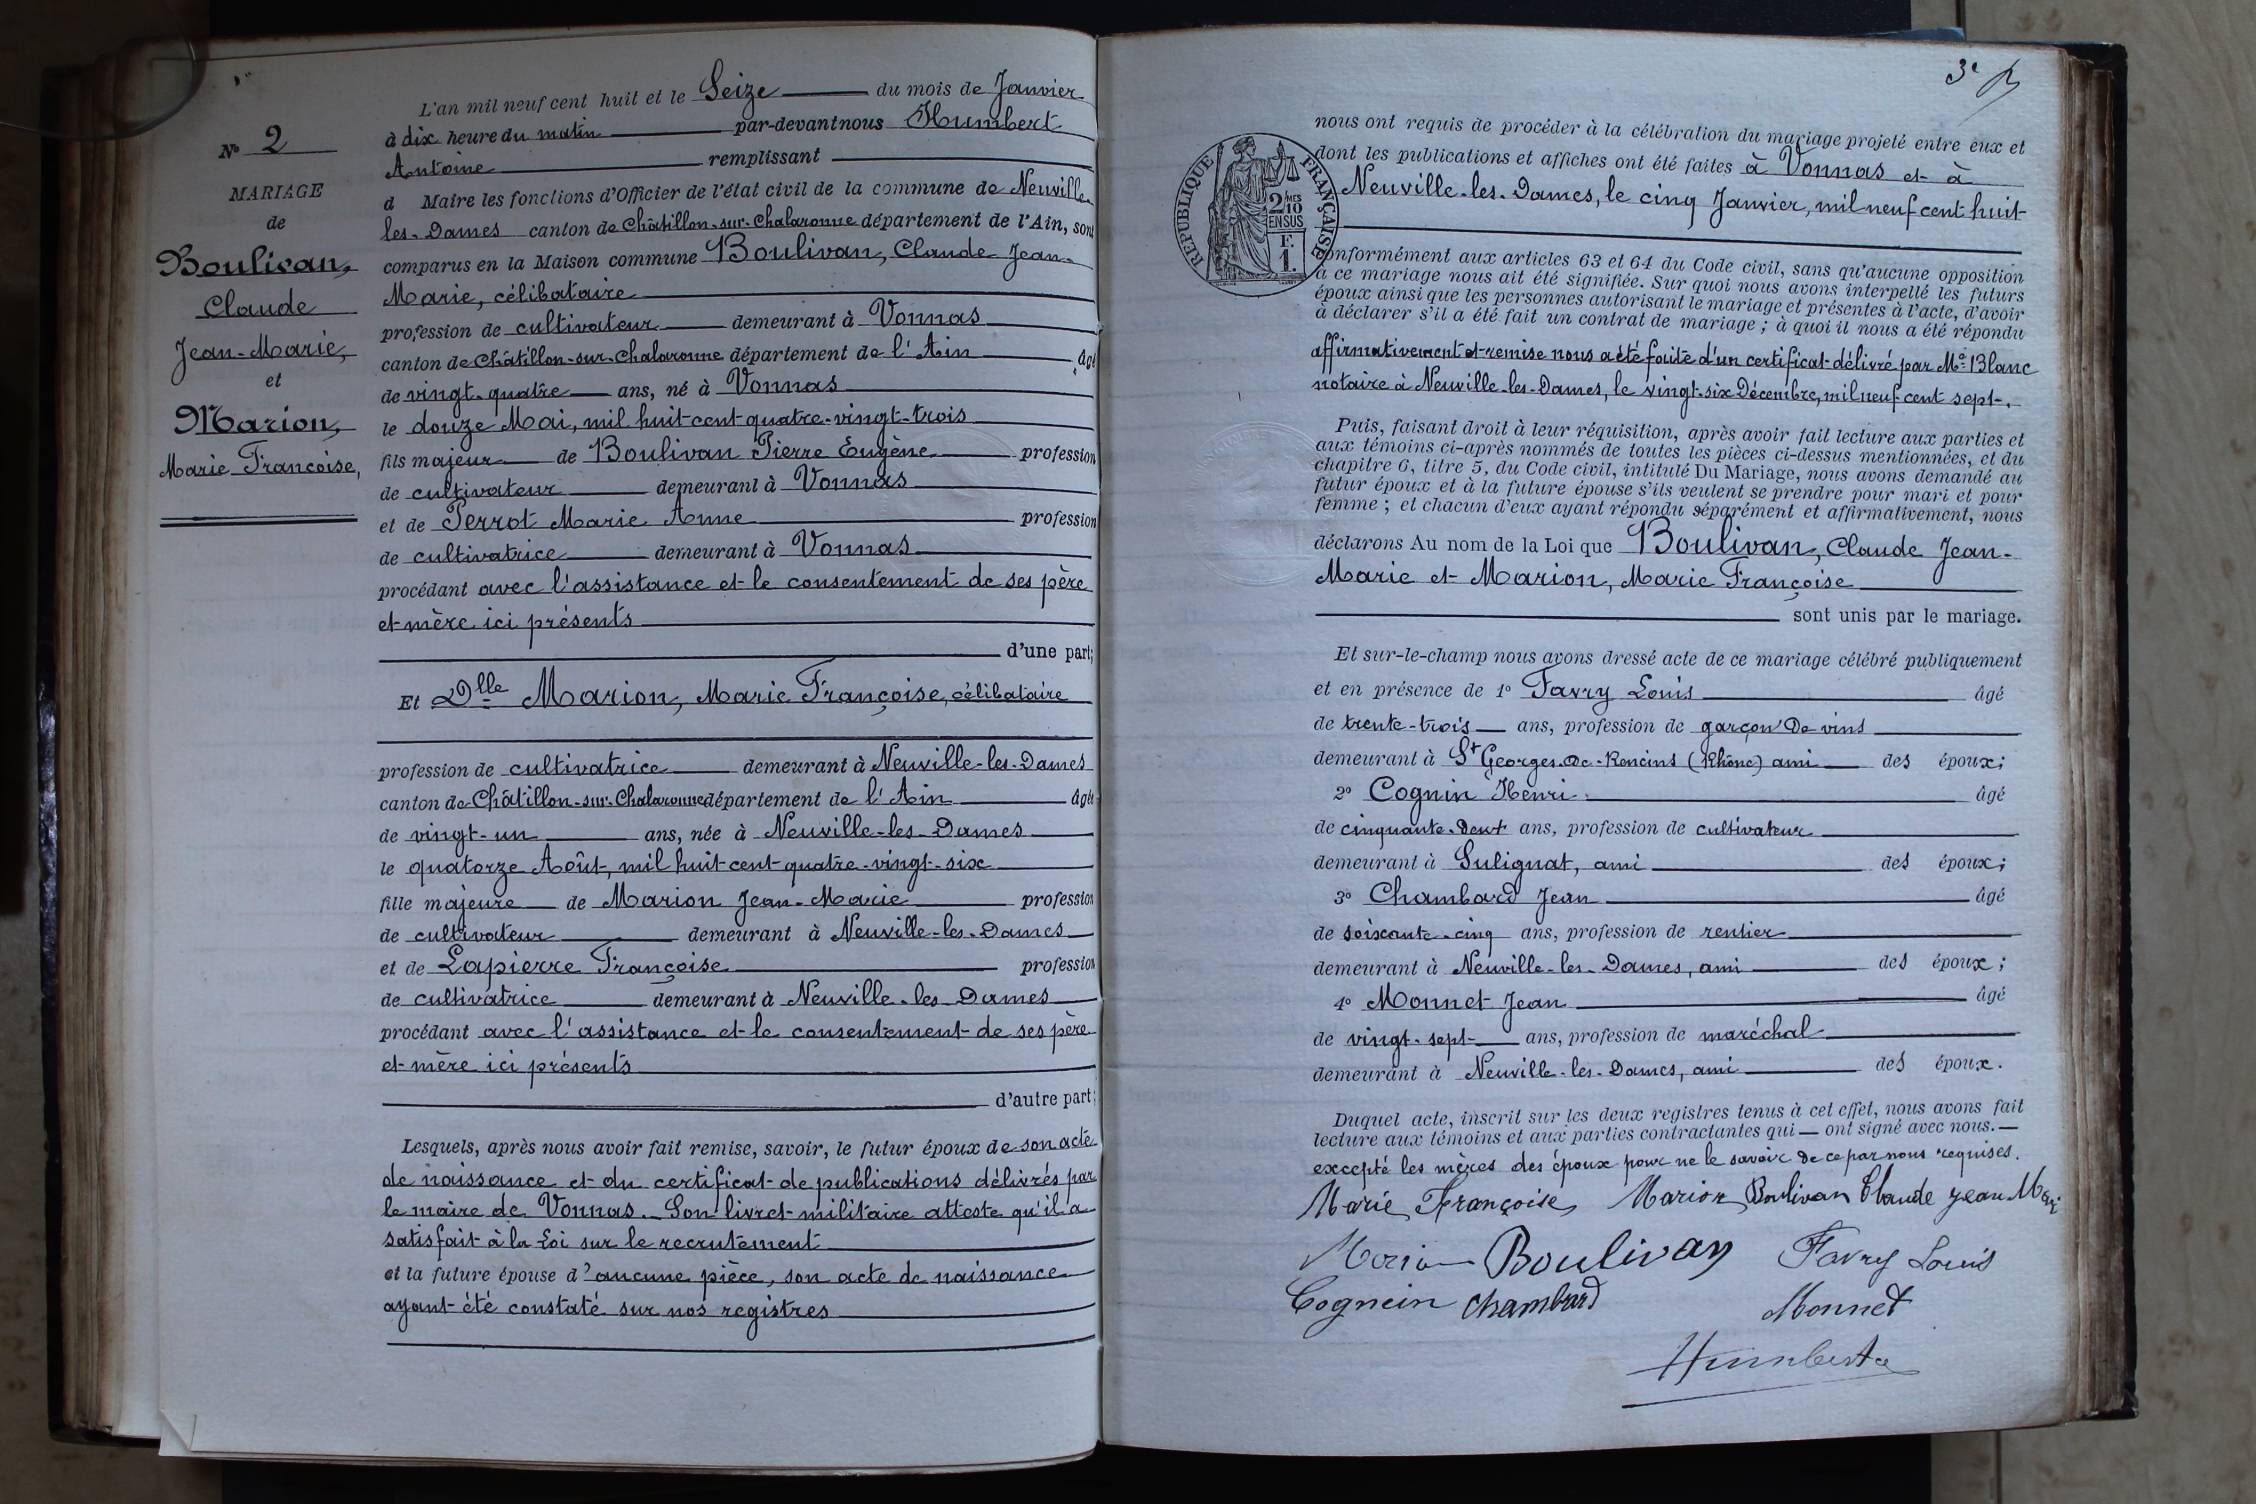 N° 2
MARIAGE
de
Boulivan,
Claude
Jean-Marie,
et
Marion,
Marie Françoise,
L'an mil neuf cent huit et le Seize du mois de Janvier
à dix heure du matin par-devant nous Humbert
Antoine remplissant
d Maire les fonctions d'Officier de l'état civil de la commune de Neuville-
les-Dames canton de Châtillon-sur-Chalaronne département de l'Ain, sont
comparus en la Maison commune Boulivan, Claude Jean-
Marie, célibataire
profession de cultivateur demeurant à Vonnas
canton de Châtillon-sur-Chalaronne département de l'Ain âgé
de vingt-quatre ans, né à Vonnas
le douze Mai, mil huit-cent-quatre-vingt-trois
fils majeur de Boulivan Pierre Eugène profession
de cultivateur demeurant à Vonnas
et de Perrot Marie Anne profession
de cultivatrice demeurant à Vonnas
procédant avec l'assistance et le consentement de ses père
et mère ici présents
d'une part;
Et Dlle Marion, Marie Françoise, célibataire
profession de cultivatrice demeurant à Neuville-les-Dames
canton de Châtillon-sur-Chalaronne département de l'Ain âgée
de vingt-un ans, née à Neuville-les-Dames
le quatorze Août, mil huit-cent-quatre-vingt-six
fille majeure de Marion Jean-Marie profession
de cultivateur demeurant à Neuville-les-Dames
et de Lapierre Françoise profession
de cultivatrice demeurant à Neuville-les-Dames
procédant avec l'assistance et le consentement de ses père
et mère ici présents
d'autre part;
Lesquels, après nous avoir fait remise, savoir, le futur époux de son acte
de naissance et du certificat de publications délivrés par
le maire de Vonnas. Son livret militaire atteste qu'il a
satisfait à la Loi sur le recrutement
et la future épouse d'aucune pièce, son acte de naissance
ayant été constaté sur nos registres
3e
RÉPUBLIQUE FRANÇAISE
2 MES
10
EN SUS
F.
1.
nous ont requis de procéder à la célébration du mariage projeté entre eux et
dont les publications et affiches ont été faites à Vonnas et à
Neuville-les-Dames, le cinq Janvier, mil neuf cent huit
conformément aux articles 63 et 64 du Code civil, sans qu'aucune opposition
à ce mariage nous ait été signifiée. Sur quoi nous avons interpellé les futurs
époux ainsi que les personnes autorisant le mariage et présentes à l'acte, d'avoir
à déclarer s'il a été fait un contrat de mariage; à quoi il nous a été répondu
affirmativement et remise nous a été faite d'un certificat délivré par Me Blanc
notaire à Neuville-les-Dames, le vingt-six Décembre, mil neuf cent sept.
Puis, faisant droit à leur réquisition, après avoir fait lecture aux parties et
aux témoins ci-après nommés de toutes les pièces ci-dessus mentionnées, et du
chapitre 6, titre 5, du Code civil, intitulé Du Mariage, nous avons demandé au
futur époux et à la future épouse s'ils veulent se prendre pour mari et pour
femme; et chacun d'eux ayant répondu séparément et affirmativement, nous
déclarons Au nom de la Loi que Boulivan, Claude Jean-
Marie et Marion, Marie Françoise
sont unis par le mariage.
Et sur-le-champ nous avons dressé acte de ce mariage célébré publiquement
et en présence de 1° Favry Louis âgé
de trente-trois ans, profession de garçon de vins
demeurant à St Georges-de-Reneins (Rhône) ami des époux;
2° Cognin Henri âgé
de cinquante-deux ans, profession de cultivateur
demeurant à Sulignat, ami des époux;
3° Chambard Jean âgé
de soixante-cinq ans, profession de rentier
demeurant à Neuville-les-Dames, ami des époux;
4° Monnet Jean âgé
de vingt-sept ans, profession de maréchal
demeurant à Neuville-les-Dames, ami des époux.
Duquel acte, inscrit sur les deux registres tenus à cet effet, nous avons fait
lecture aux témoins et aux parties contractantes qui — ont signé avec nous.—
excepté les mères des époux pour ne le savoir de ce par nous requises.
Marie Françoise Marion Boulivan Claude Jean Marie
Marion Boulivan Favry Louis
Cognein Chambard Monnet
Humbert a